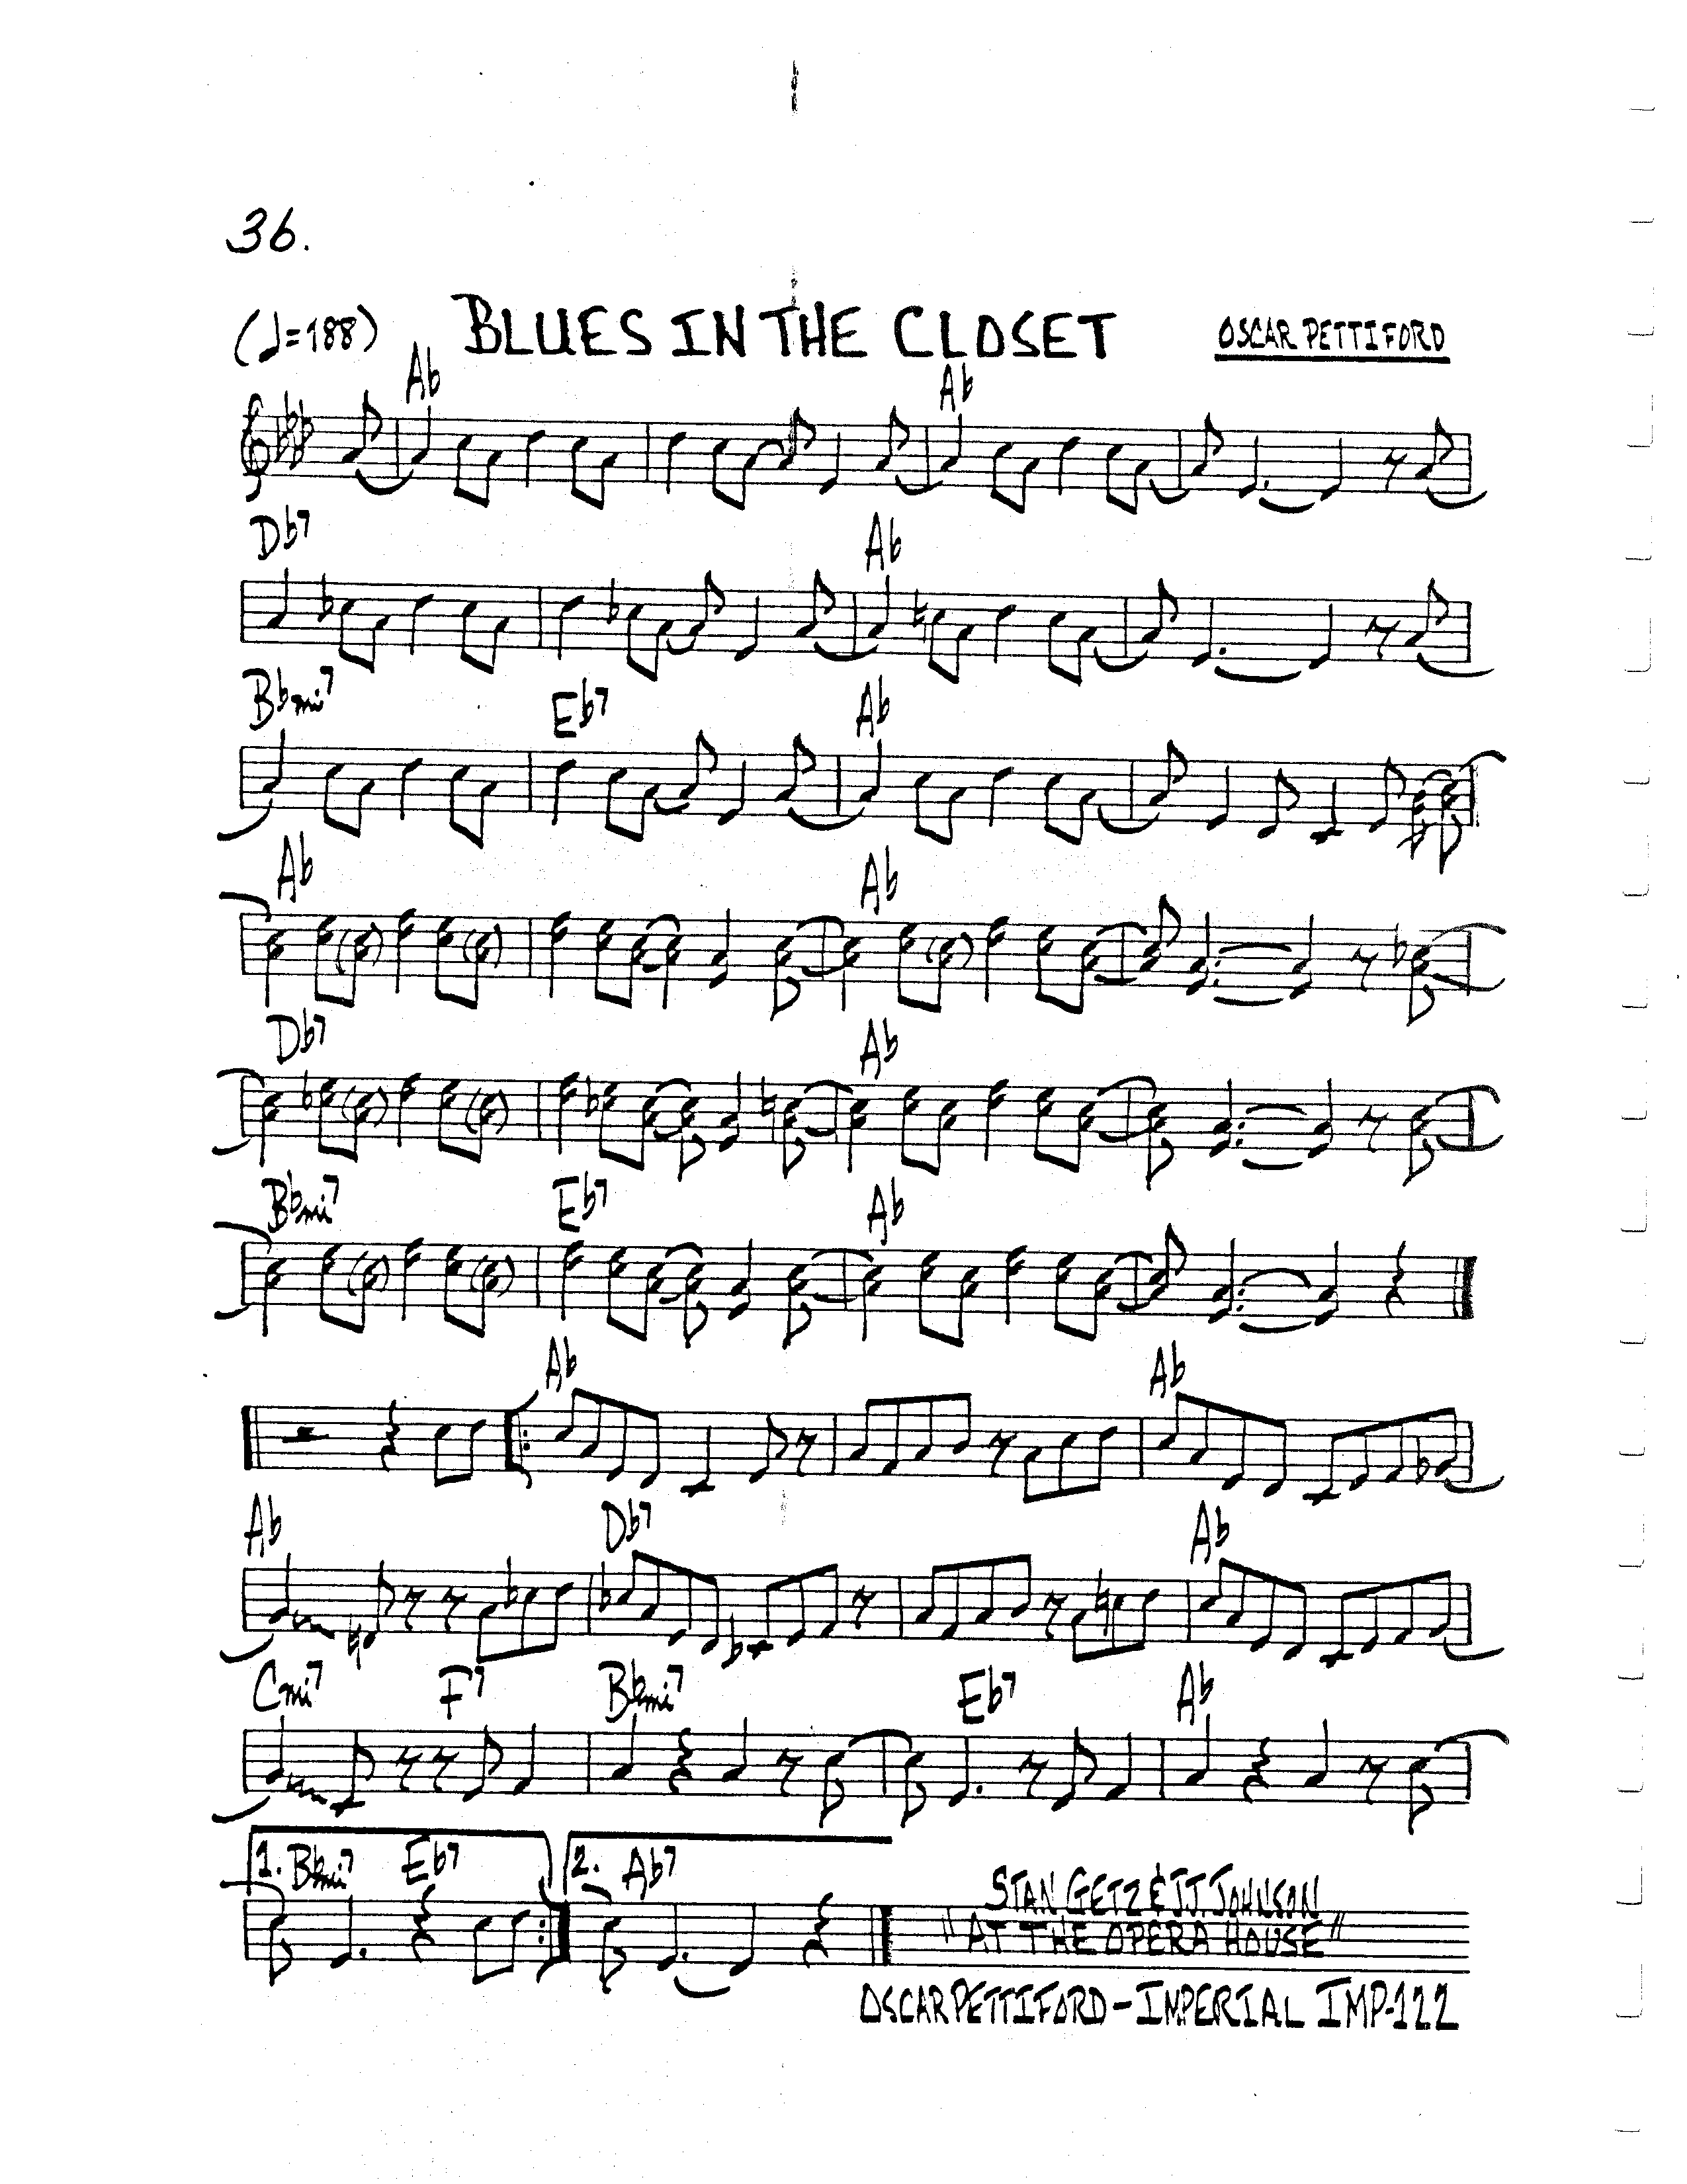 36.
(♩=188) BLUES IN THE CLOSET OSCAR PETTIFORD
Ab Ab
Db7 Ab
Bbmi7 Eb7 Ab
Ab Ab
Db7 Ab
Bbmi7 Eb7 Ab
Ab Ab
Ab Db7 Ab
Cmi7 F7 Bbmi7 Eb7 Ab
1. Bbmi7 Eb7 2. Ab7
STAN GETZ & J.J. JOHNSON
"AT THE OPERA HOUSE"
OSCAR PETTIFORD-IMPERIAL IMP-122